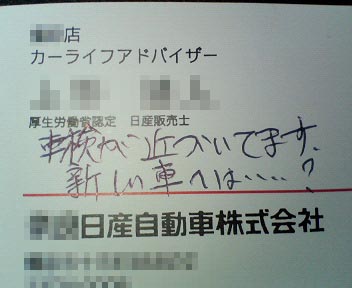 店
カーライフアドバイザー
厚生労働省認定 日産販売士
車検が近づいてます.
新しい車へは・・・・?
日産自動車株式会社